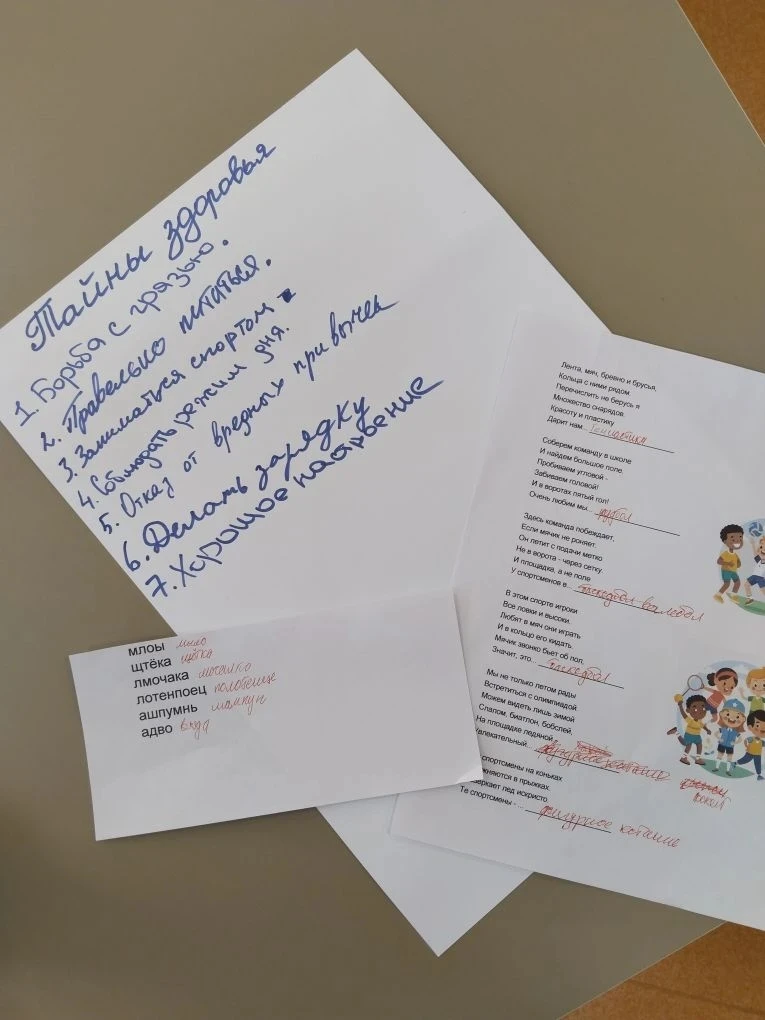 Тайны здоровья
1. Борьба с грязью.
2. Правельно питаться.
3. Заниматься спортом
4. Соблюдать режим дня.
5. Отказ от вредных привычек
6. Делать зарядку
7. Хорошое настроение
млоы мыло
щтёка щётка
лмочака мочалка
лотенпоец полотенце
ашпумнь шампунь
адво вода
Лента, мяч, бревно и брусья,
Кольца с ними рядом.
Перечислить не берусь я
Множество снарядов.
Красоту и пластику
Дарит нам... Гимнастика
Соберем команду в школе
И найдем большое поле.
Пробиваем угловой -
Забиваем головой!
И в воротах пятый гол!
Очень любим мы... футбол
Здесь команда побеждает,
Если мячик не роняет.
Он летит с подачи метко
Не в ворота - через сетку.
И площадка, а не поле
У спортсменов в... баскедбол волебол
В этом спорте игроки
Все ловки и высоки.
Любят в мяч они играть
И в кольцо его кидать.
Мячик звонко бьет об пол,
Значит, это... баскедбол
Мы не только летом рады
Встретиться с олимпиадой.
Можем видеть лишь зимой
Слалом, биатлон, бобслей,
На площадке ледяной
Увлекательный... хоккей
спортсмены на коньках
упражняются в прыжках.
сверкает лед искристо.
Те спортсмены - ... фигурное катание